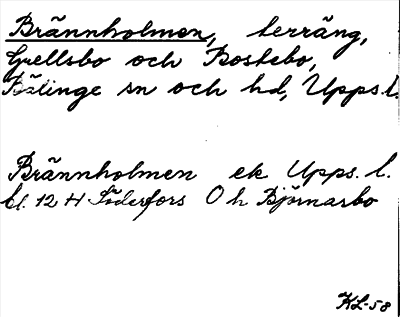 Brännholmen, terräng,
Grellsbo och Bostebo,
Bälinge sn och hd, Upps.l.
Brännholmen ek Upps. l.
bl. 12 H Söderfors O h Björnarbo
KL-58